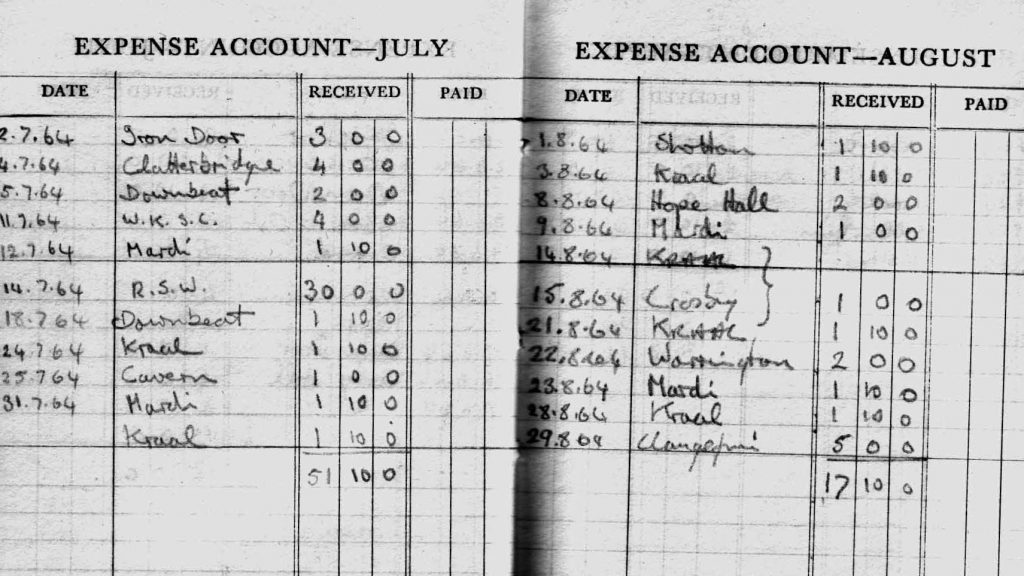 EXPENSE ACCOUNT—JULY
DATE RECEIVED PAID
2.7.64 Iron Door 3 0 0
4.7.64 Clatterbridge 4 0 0
5.7.64 Downbeat 2 0 0
11.7.64 W.K.S.C. 4 0 0
12.7.64 Mardi 1 10 0
14.7.64 R.S.W. 30 0 0
18.7.64 Downbeat 1 10 0
24.7.64 Kraal 1 10 0
25.7.64 Cavern 1 0 0
31.7.64 Mardi 1 10 0
Kraal 1 10 0
51 10 0
EXPENSE ACCOUNT—AUGUST
DATE RECEIVED PAID
1.8.64 Shotton 1 10 0
3.8.64 Kraal 1 10 0
8.8.64 Hope Hall 2 0 0
9.8.64 Mardi 1 0 0
14.8.64 KRAAL
15.8.64 Crosby 1 0 0
21.8.64 KRAAL 1 10 0
22.8.64 Warrington 2 0 0
23.8.64 Mardi 1 10 0
28.8.64 Kraal 1 10 0
29.8.64 5 0 0
17 10 0